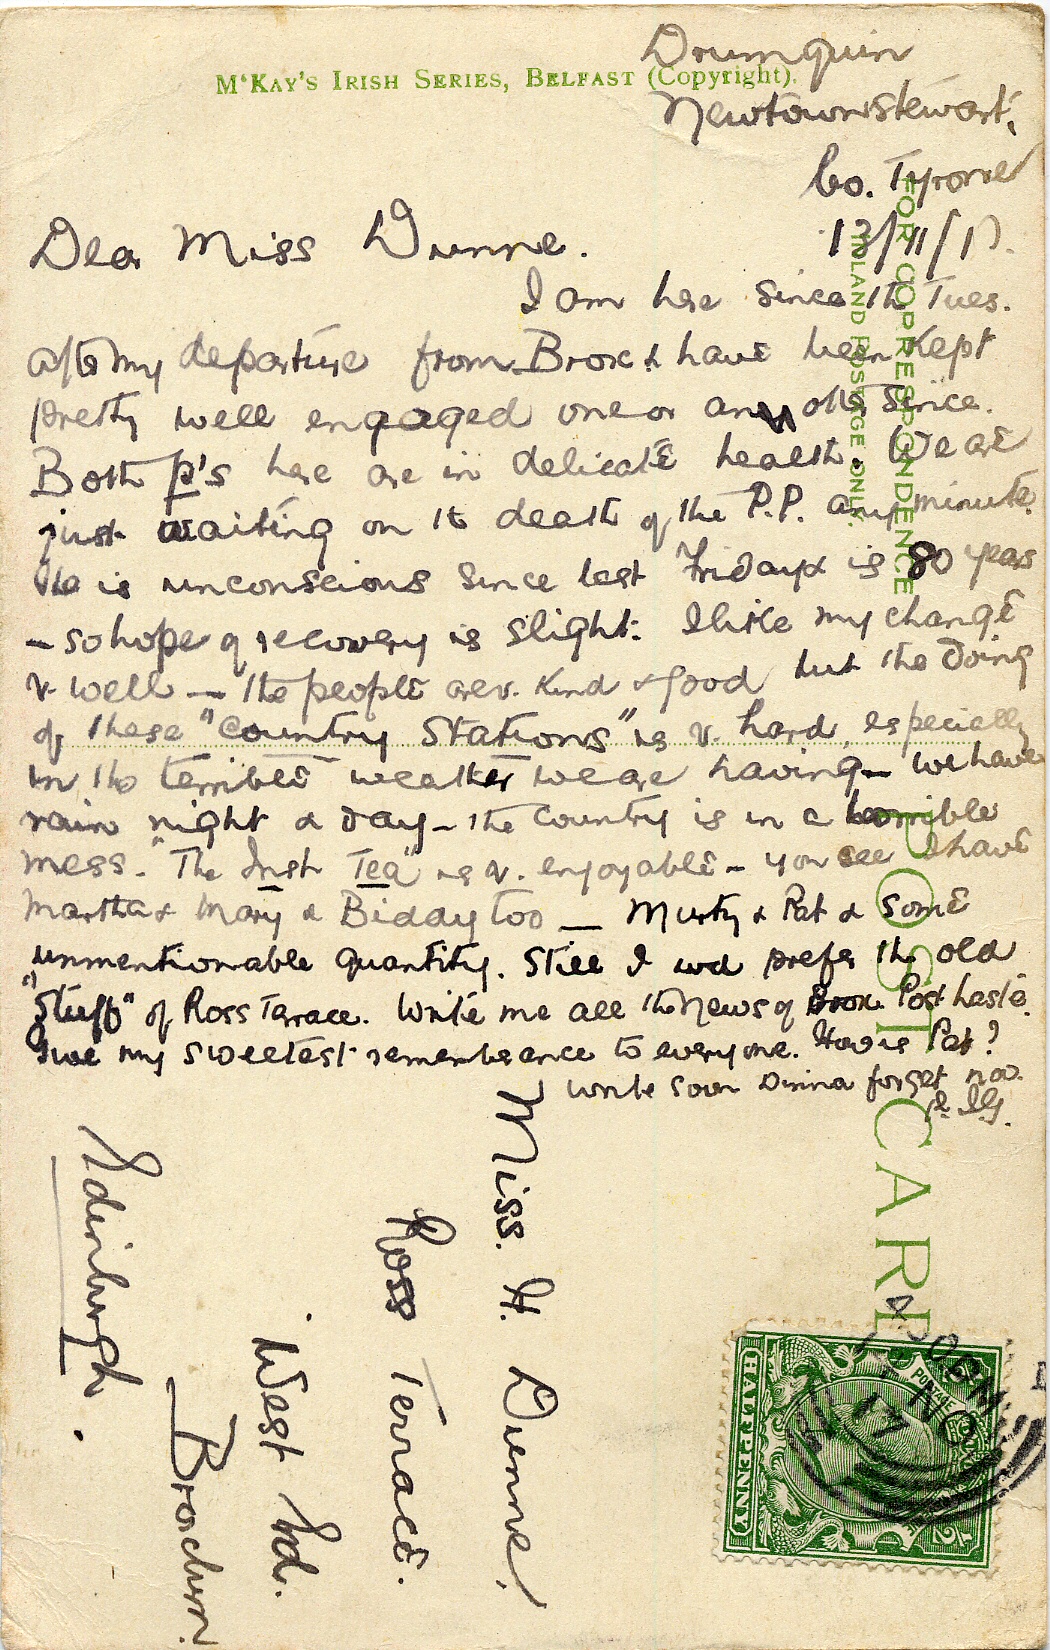 M'Kay's Irish Series, Belfast (Copyright).
Drumquin
Newtownstewart,
Co. Tyrone
13/11/17.
Dear Miss Dunne.
I am here since the Tues.
after my departure from Brox & have been kept
pretty well engaged one or any other since.
Both P's here are in delicate health. We are
just waiting on the death of the P.P. any minute.
He is unconscious since last Friday & is 80 years
– so hope of recovery is slight. I like my change
v. well – the people are v. kind & good but the doing
of these "Country Stations" is v. hard, especially
in the terrible weather we are having – we have
rain night & day – the country is in a horrible
mess. "The Irish Tea" is v. enjoyable – you see I have
Martha & Mary & Biddy too — Murty & Pat & some
unmentionable quantity. Still I wd prefer the old
"Stuff" of Ross Terrace. Write me all the News of Brox. Post haste.
Give my sweetest remembrance to everyone. How is Pat?
Write soon Dinna forget now.
FOR CORRESPONDENCE
INLAND POSTAGE ONLY.
POST CARD
Miss. H. Dunne,
Ross Terrace.
West Rd.
Broxburn
Edinburgh.
POSTAGE
HALFPENNY
4 30 PM
NO
17